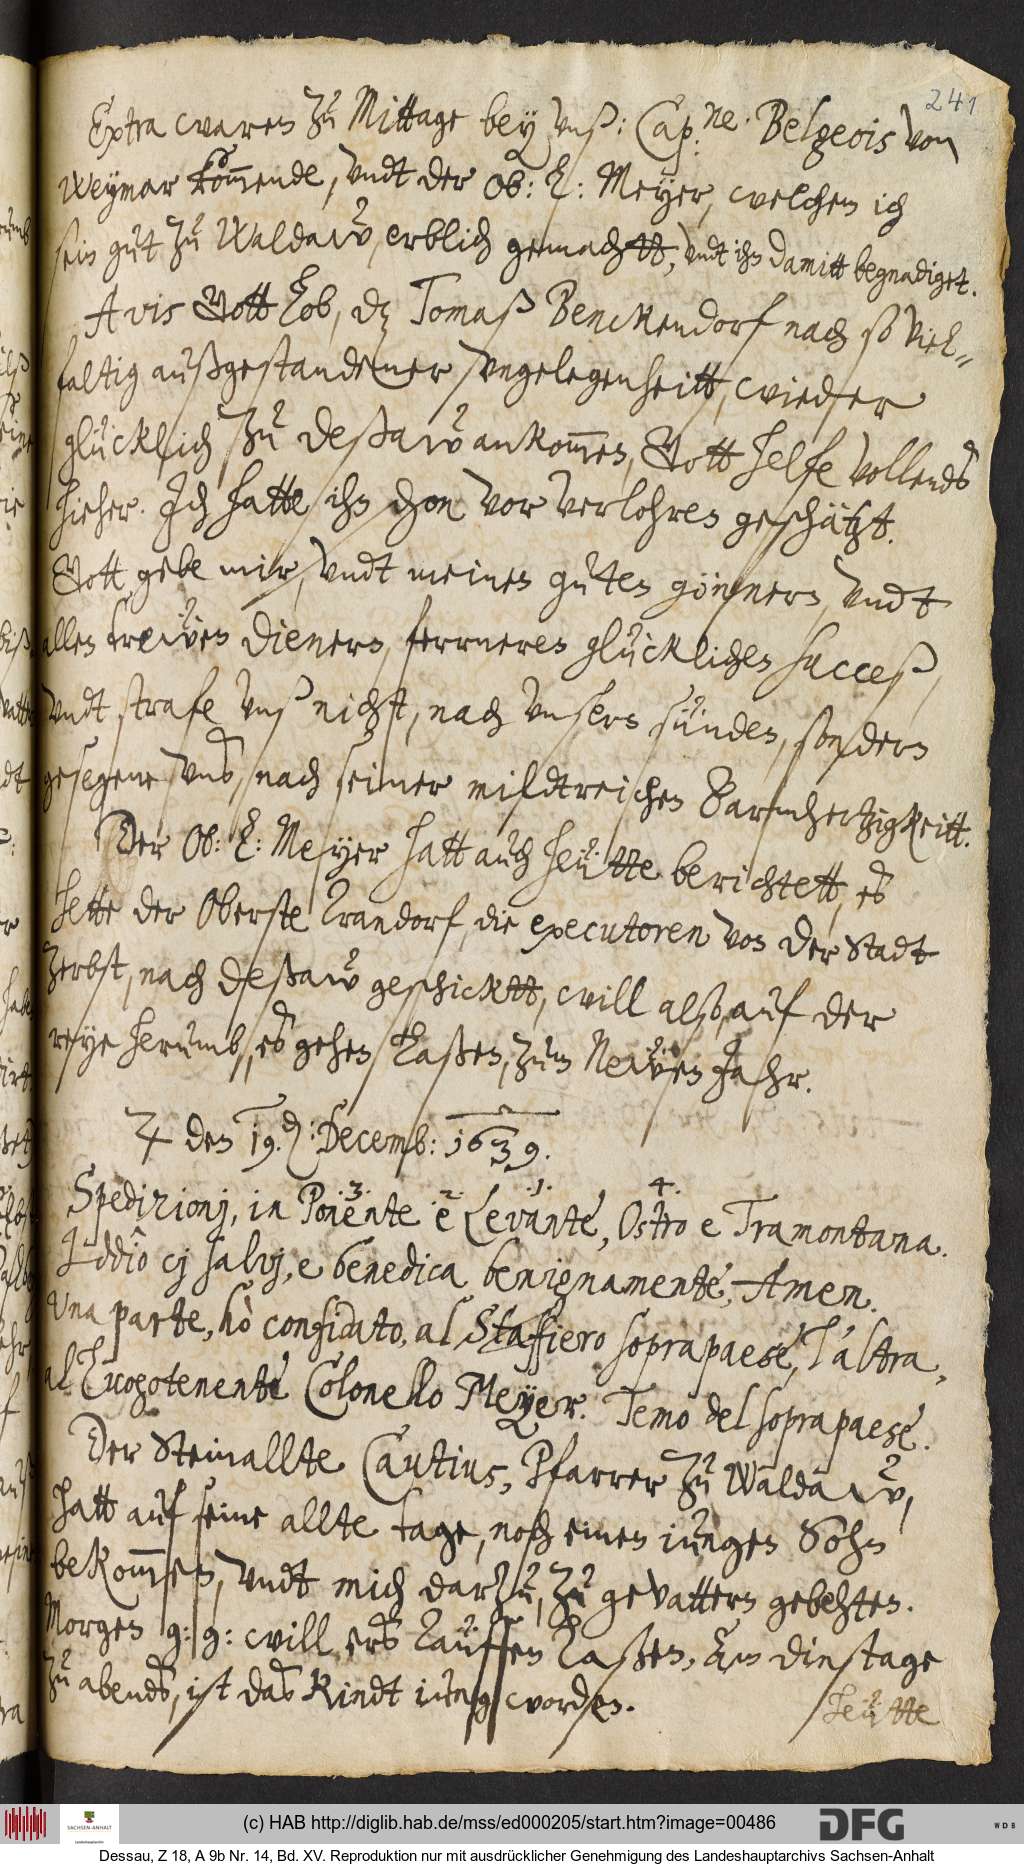 241
Extra waren zu Mittage bey unß: Cap:ne. Belgeois von
Weymar kommende, undt der Ob: L: Meyer, welchen ich
sein gut zu Waldaw erblich gemachtt, undt ihn damitt begnadiget.
Avis Gott Lob, dz Tomaß Benckendorf nach so viel-
faltig außgestandener ungelegenheitt, wieder
glücklich zu Deßaw ankommen, Gott helfe vollends
hieher. Ich hatte ihn schon vor verlohren geschätzt.
Gott gebe mir, undt meinen guten gönnern, undt
allen trewen dienern, ferrneren glücklichen succeß,
undt strafe unß nicht, nach unsern sünden, sondern
gesegene uns, nach seiner mildtreichen Barmhertzigkeitt.
Der Ob: L: Meyer hatt auch heütte berichtett, es
hette der Oberste Trandorf, die executoren von der Stadt
Zerbst, nach Deßaw geschicktt, will alß auf der
reye herumb, es gehen laßen, zum Newen Jahr.
♃ den 19. d: Decemb: 1639.
.3. .2. .1. .4.
Spedizionj, in Ponente e Levante, Ostro e Tramontana.
Iddio cj salvj, e benedica benignamente, Amen.
Una parte, hò confidato, al Staffiero soprapaese, l'altra,
al Luogotenente Colonello Meyer. Temo del soprapaese.
Der Steinallte Cautius, Pfarrer zu Waldaw,
hatt auf seine allte tage, noch einen jungen Sohn
bekommen, undt mich darzu, zu gevattern gebehten.
Morgen g: g: will ers Tauffen laßen, Am dinstage
zu abends, ist das Kindt iung worden.
Heütte
(c) HAB http://diglib.hab.de/mss/ed000205/start.htm?image=00486
SACHSEN-ANHALT
DFG
WDB
Dessau, Z 18, A 9b Nr. 14, Bd. XV. Reproduktion nur mit ausdrücklicher Genehmigung des Landeshauptarchivs Sachsen-Anhalt